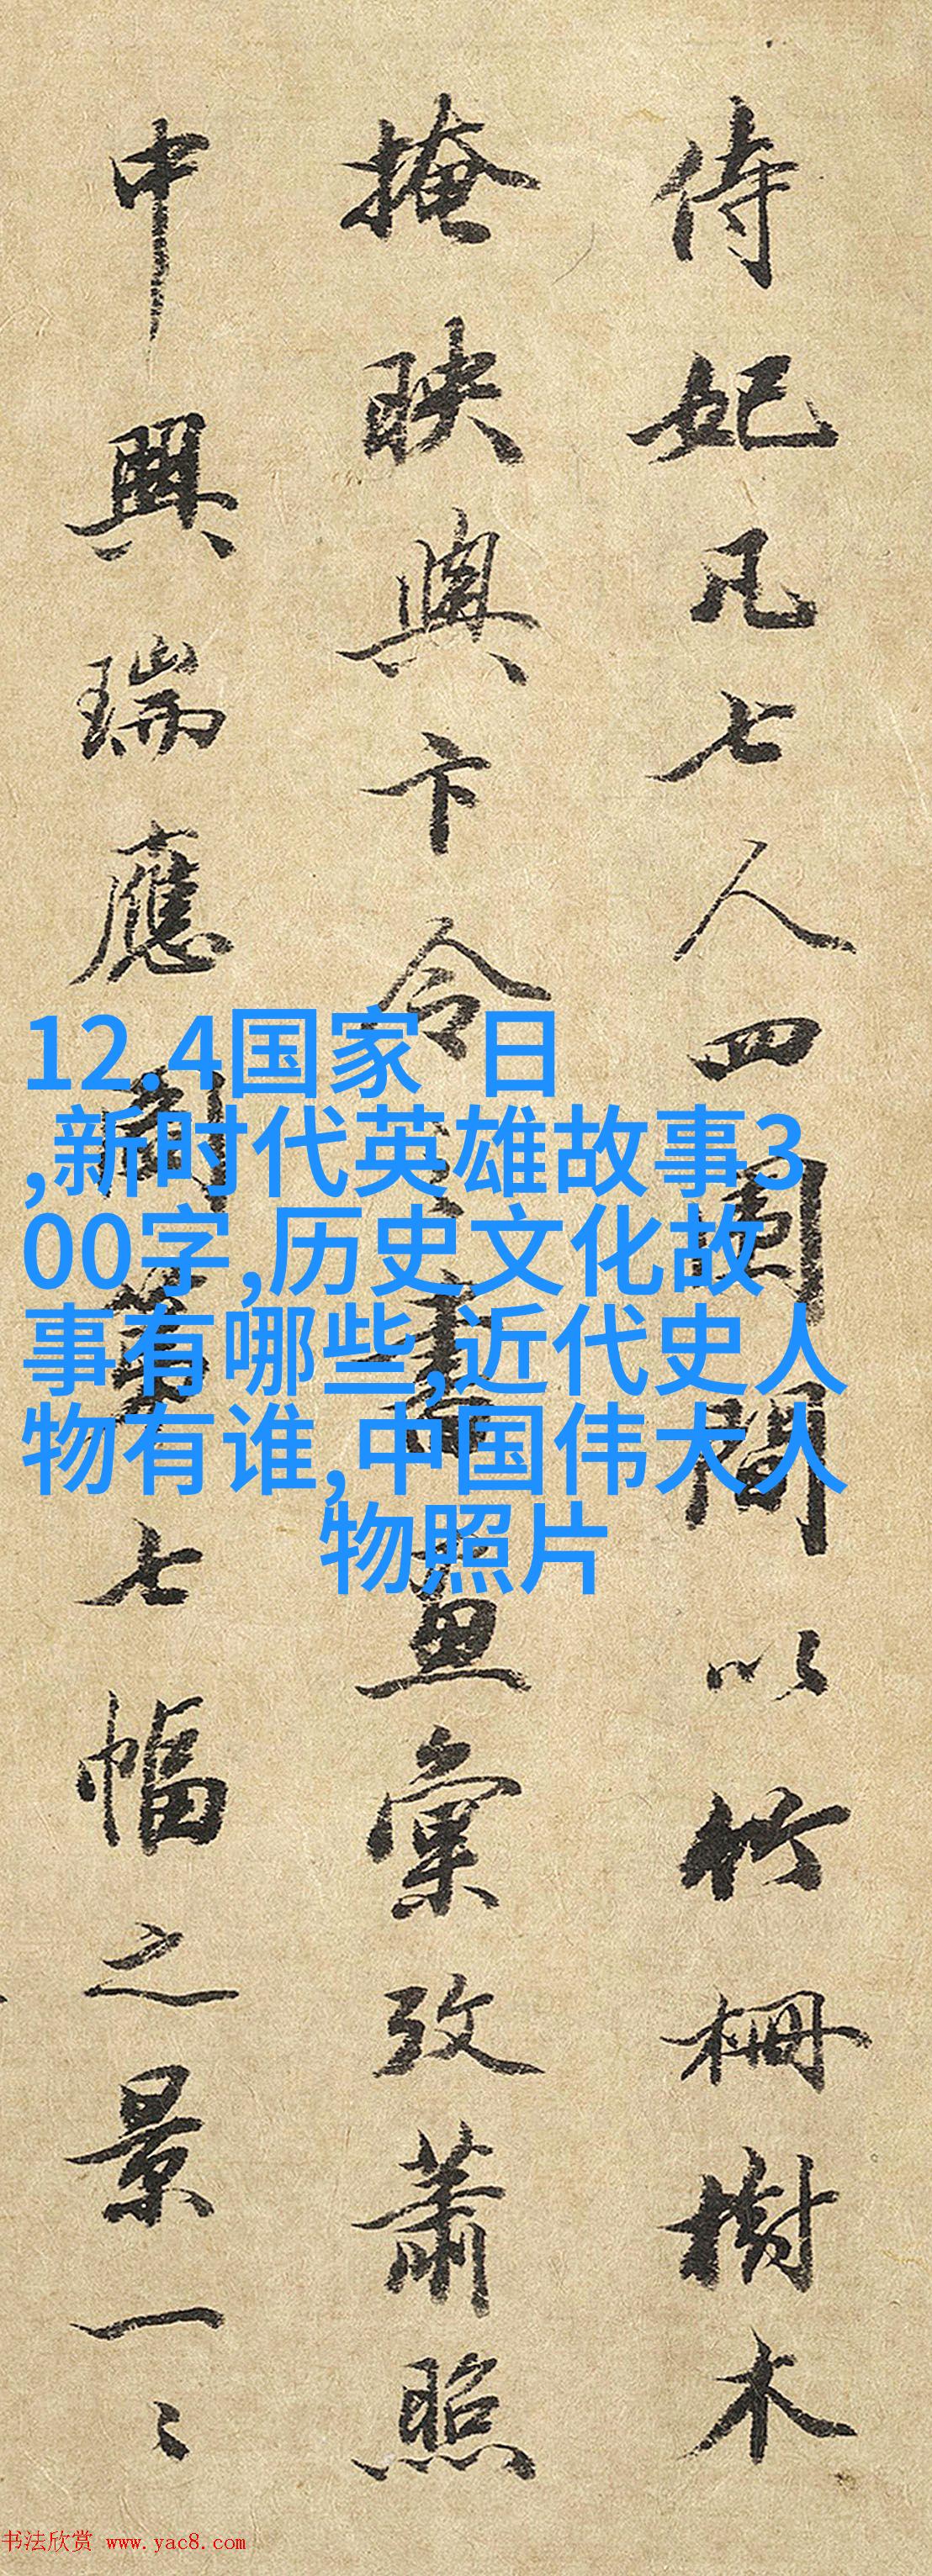 侍妃凡七人四圍間以竹柵樹木
掩映與卞令書畫彙攷蕭照
中興瑞應圖第七幅之景一〻
12.4国家 日
,新时代英雄故事3
00字,历史文化故
事有哪些,近代史人
物有谁,中国伟大人
物照片
书法欣赏 www.yac8.com